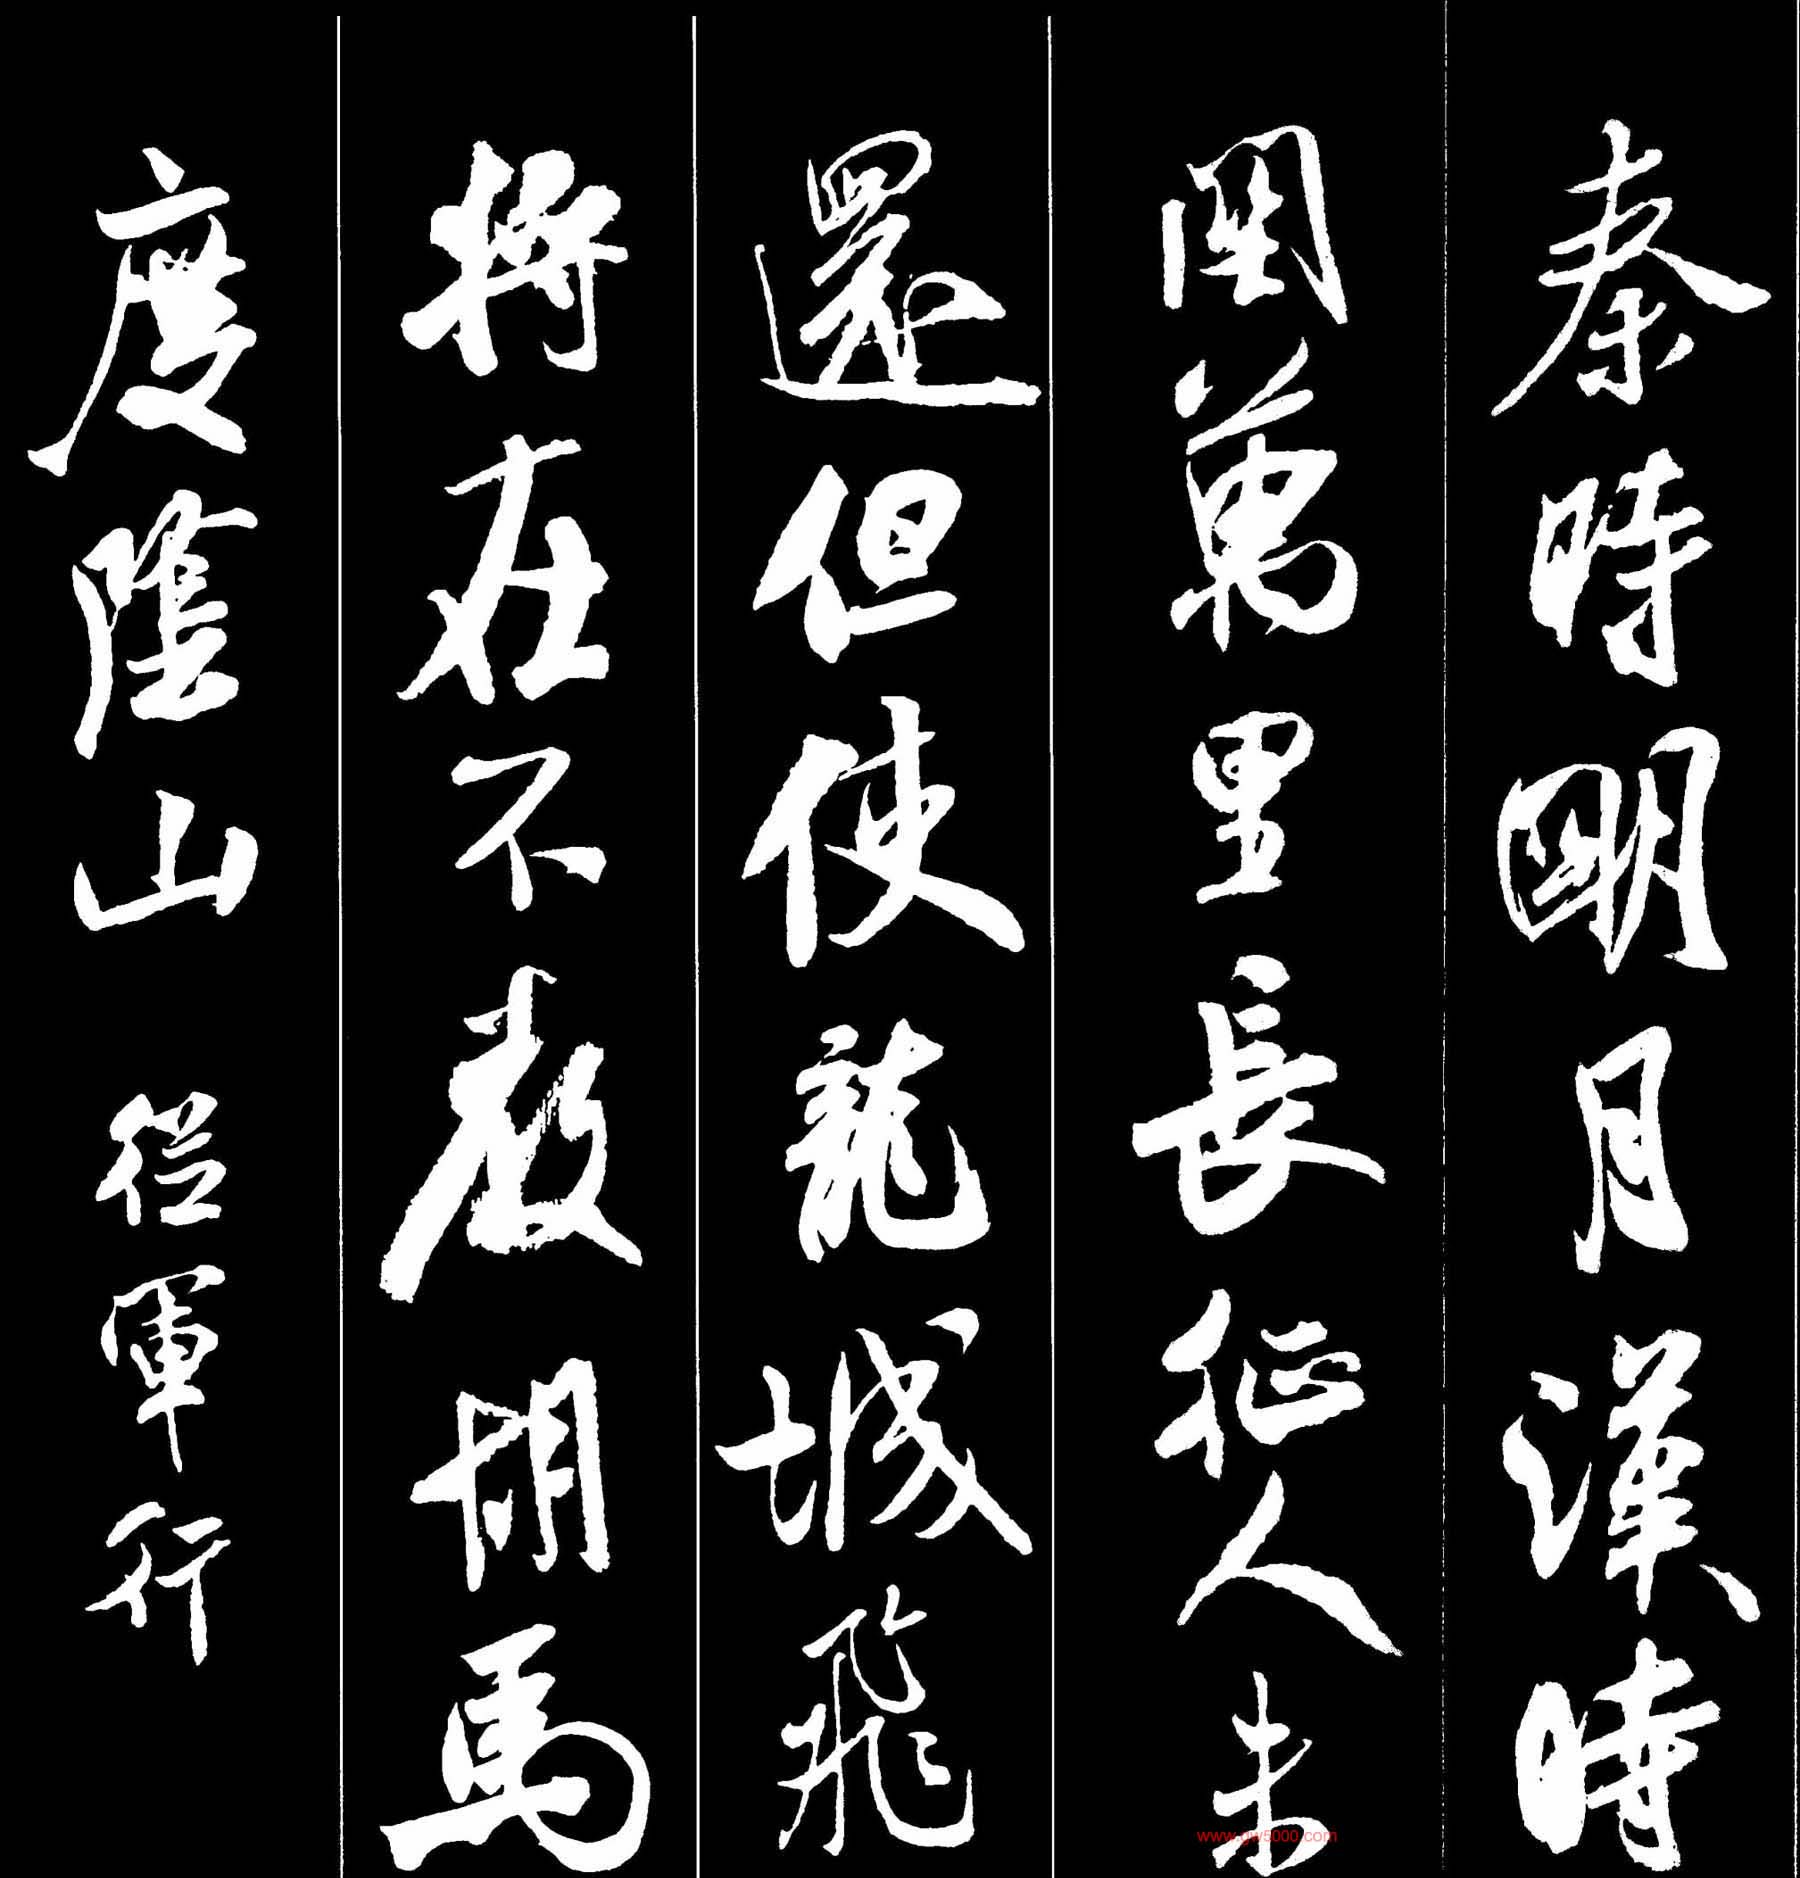 秦時明月漢時
關萬里長征人未
還但使龍城飛
將在不教胡馬
度陰山 從軍行
www.gw5000.com